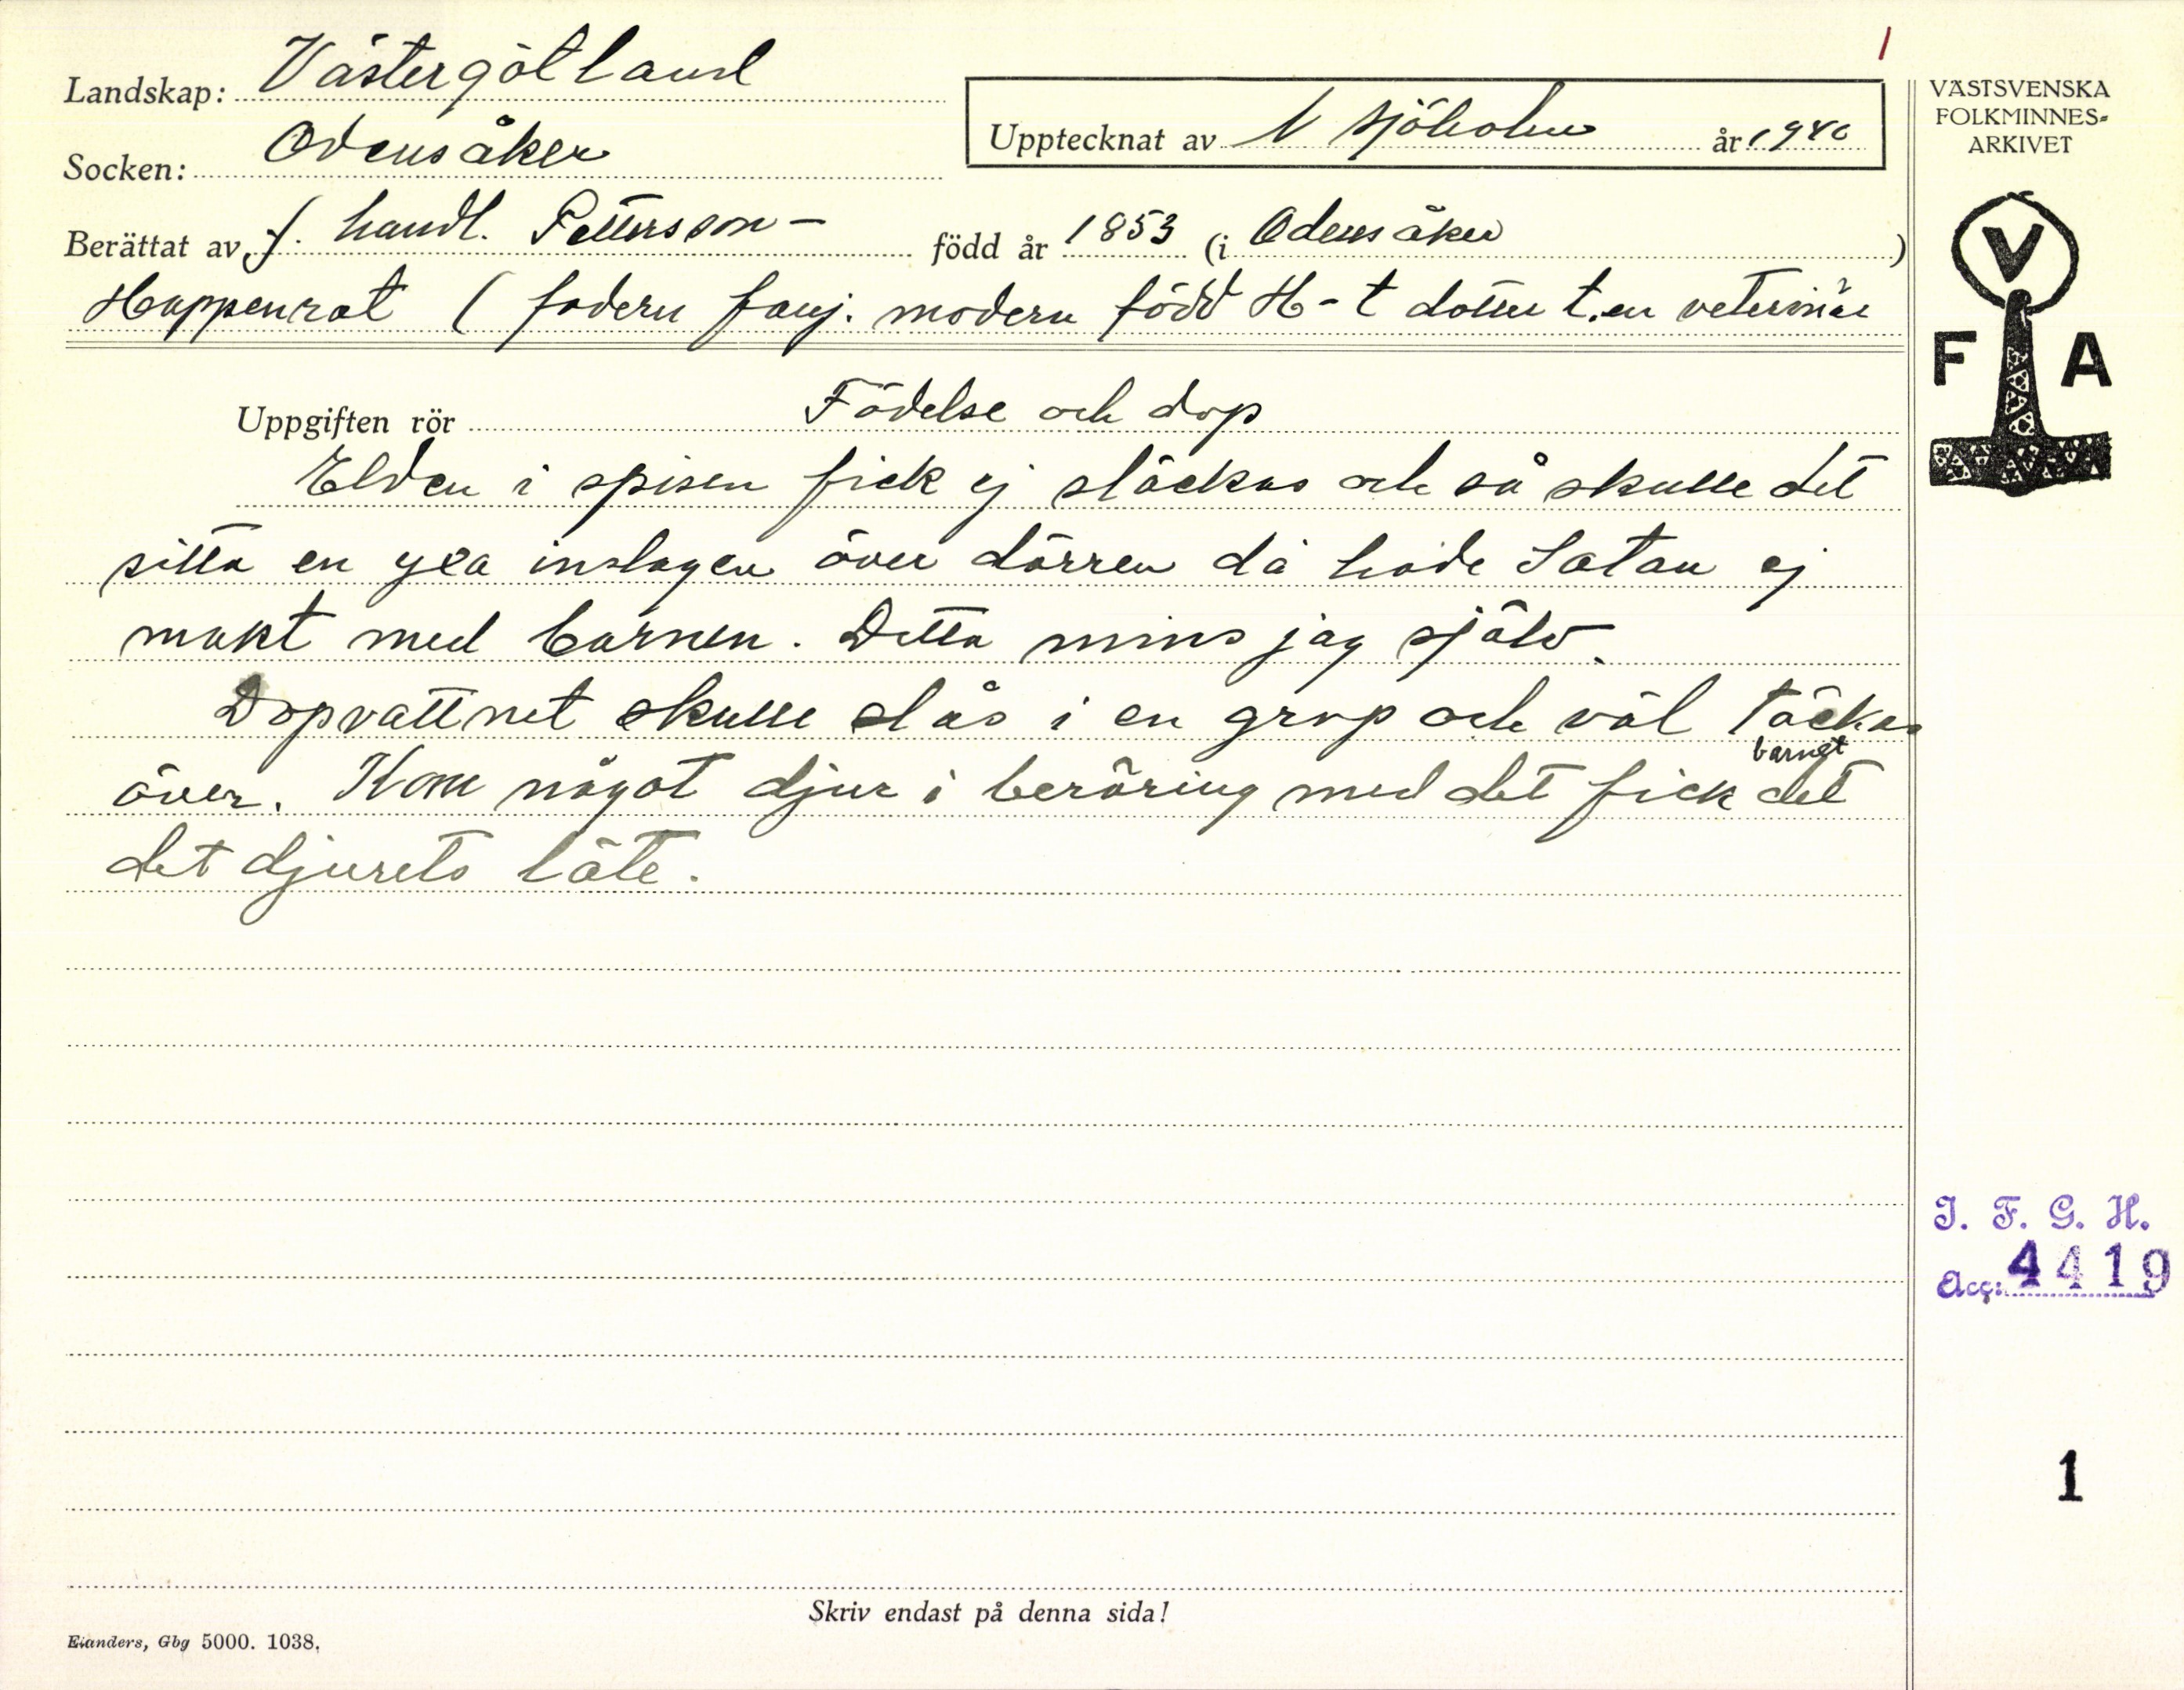 1
Landskap: Västergötland
VÄSTSVENSKA
FOLKMINNES=
ARKIVET
Upptecknat av N Sjöholm år 1940
Socken: Odensåker
Berättat av f. handl. Pettersson – född år 1853 (i Odensåker)
Happenrat ( fadern fanj. modern född H-t dotter t. en veterinär
V
F A
Uppgiften rör Födelse och dop
Elden i spisen fick ej släckas och så skulle det
sitta en yxa inslagen över dörren då hade Satan ej
makt med barnen. Detta mins jag själv.
Dopvattnet skulle slås i en grop och väl täckas
över. Kom något djur i beröring med det fick det
barnet
det djurets läte.
I. F. G. H.
Acc: 4419
1
Skriv endast på denna sida!
Elanders, Gbg 5000. 1038.